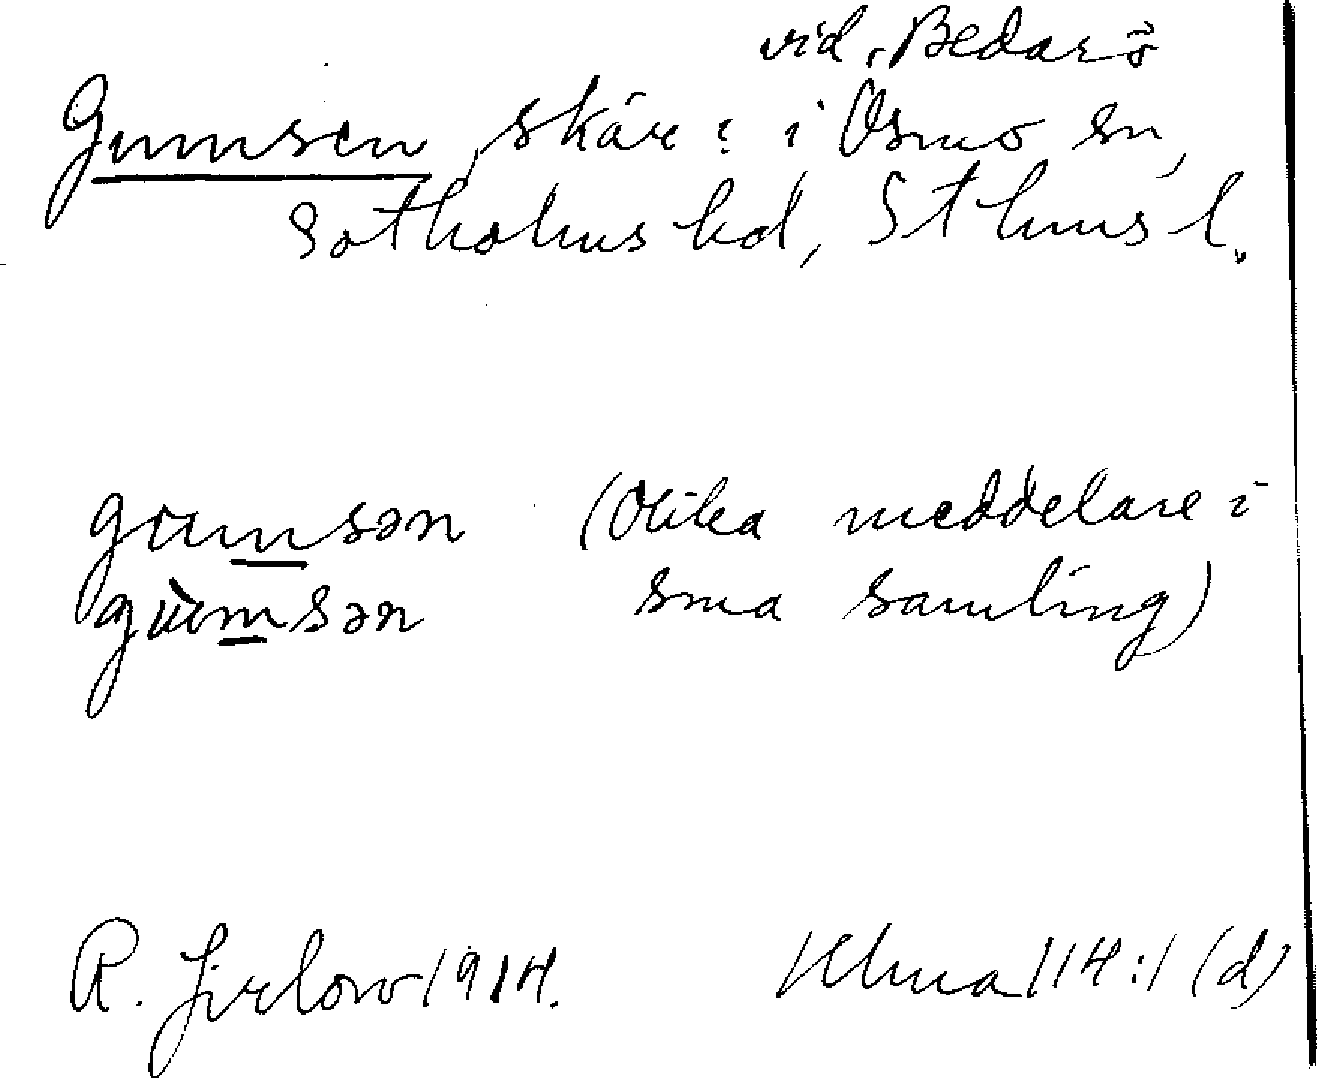 vid Bedarö
Gumsen, skär: i Ösmo sn,
Sotholms hd, Sthms l.
gumsən (Olika meddelare i
gùmsən sma samling)
R. Jirlow 1914. Ulma 114:1 (d)